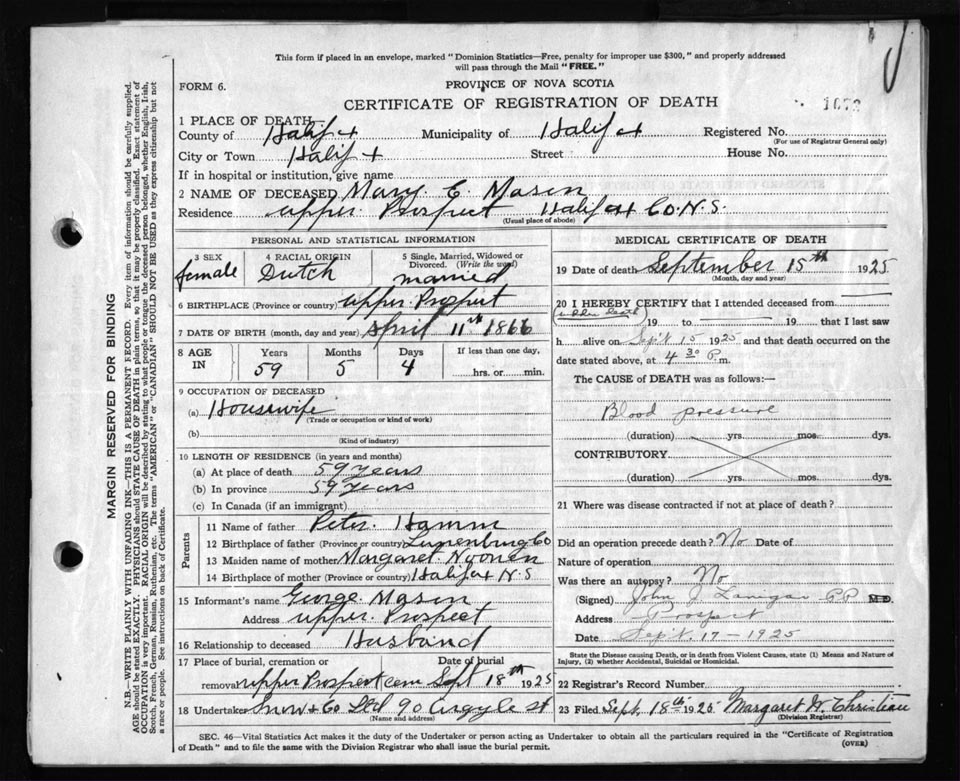 This form if placed in an envelope, marked "Dominion Statistics—Free, penalty for improper use $300," and properly addressed
will pass through the Mail "FREE."
FORM 6.
PROVINCE OF NOVA SCOTIA
CERTIFICATE OF REGISTRATION OF DEATH
1 PLACE OF DEATH
County of Halifax Municipality of Halifax Registered No.
(For use of Registrar General only)
City or Town Halifax Street House No.
If in hospital or institution, give name
2 NAME OF DECEASED Mary E. Mason
Residence upper Prospect Halifax Co. N.S.
(Usual place of abode)
PERSONAL AND STATISTICAL INFORMATION
3 SEX 4 RACIAL ORIGIN 5 Single, Married, Widowed or
Divorced. (Write the word)
female Dutch married
6 BIRTHPLACE (Province or country) upper Prospect
7 DATE OF BIRTH (month, day and year) April 11th 1866
8 AGE IN Years Months Days If less than one day,
59 5 4 hrs. or min.
9 OCCUPATION OF DECEASED
(a) Housewife
(Trade or occupation or kind of work)
(b)
(Kind of industry)
10 LENGTH OF RESIDENCE (in years and months)
(a) At place of death 59 years
(b) In province 59 years
(c) In Canada (if an immigrant)
Parents
11 Name of father Peter. Hamm
12 Birthplace of father (Province or country) Lunenburg Co
13 Maiden name of mother Margaret Noonen
14 Birthplace of mother (Province or country) Halifax N.S
15 Informant's name George Mason
Address upper Prospect
16 Relationship to deceased Husband
17 Place of burial, cremation or Date of burial
removal upper Prospect cem Sept 18th 1925
18 Undertaker Snow & Co Ltd 90 Argyle st
(Name and address)
MEDICAL CERTIFICATE OF DEATH
19 Date of death September 15th 1925
(Month, day and year)
20 I HEREBY CERTIFY that I attended deceased from
19 to 19 that I last saw
h alive on Sept 15 1925 and that death occurred on the
date stated above, at 4 30 P.m.
The CAUSE of DEATH was as follows:—
Blood pressure
(duration) yrs. mos. dys.
CONTRIBUTORY
(duration) yrs. mos. dys.
21 Where was disease contracted if not at place of death?
Did an operation precede death? No Date of
Nature of operation
Was there an autopsy? No
(Signed) John J. Lanigan P.P M.D.
Address Prospect
Date Sept. 17 - 1925
State the Disease causing Death, or in death from Violent Causes, state (1) Means and Nature of
Injury, (2) whether Accidental, Suicidal or Homicidal.
22 Registrar's Record Number
23 Filed Sept. 18th 1925 Margaret W. Christian
(Division Registrar)
SEC. 46—Vital Statistics Act makes it the duty of the Undertaker or person acting as Undertaker to obtain all the particulars required in the "Certificate of Registration
of Death" and to file the same with the Division Registrar who shall issue the burial permit.
(OVER)
MARGIN RESERVED FOR BINDING
N.B.—WRITE PLAINLY WITH UNFADING INK—THIS IS A PERMANENT RECORD. Every item of information should be carefully supplied.
AGE should be stated EXACTLY. PHYSICIANS should STATE CAUSE OF DEATH in plain terms, so that it may be properly classified. Exact statement of
OCCUPATION is very important. RACIAL ORIGIN will be described by stating to what people or tongue the deceased person belonged, whether English, Irish,
Scotch, French, German, Russian, Ruthenian, etc. The terms "AMERICAN" or "CANADIAN" SHOULD NOT BE USED as they express citizenship but not
a race or people. See instructions on back of Certificate.